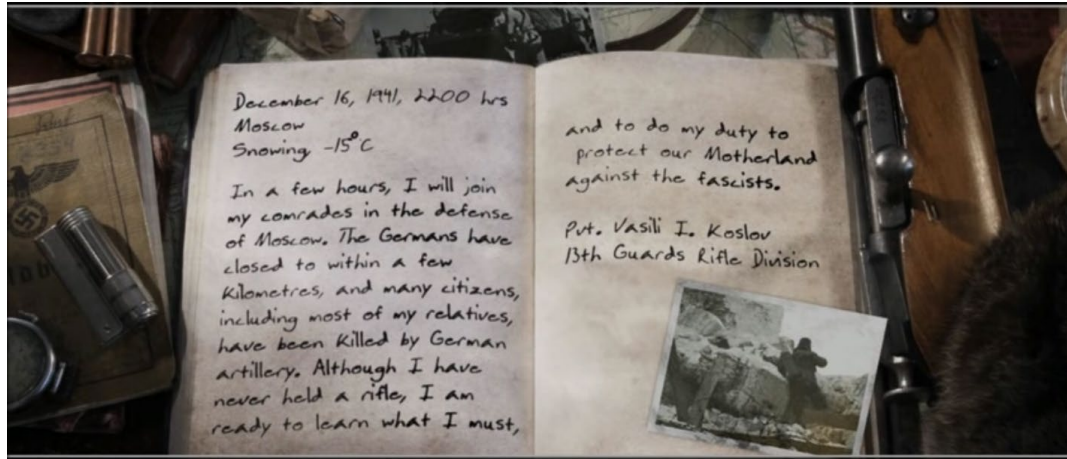 December 16, 1941, 2200 hrs
Moscow
Snowing -15°C
In a few hours, I will join
my comrades in the defense
of Moscow. The Germans have
closed to within a few
Kilometres, and many citizens,
including most of my relatives,
have been killed by German
artillery. Although I have
never held a rifle, I am
ready to learn what I must,
and to do my duty to
protect our Motherland
against the fascists.
Pvt. Vasili I. Koslov
13th Guards Rifle Division